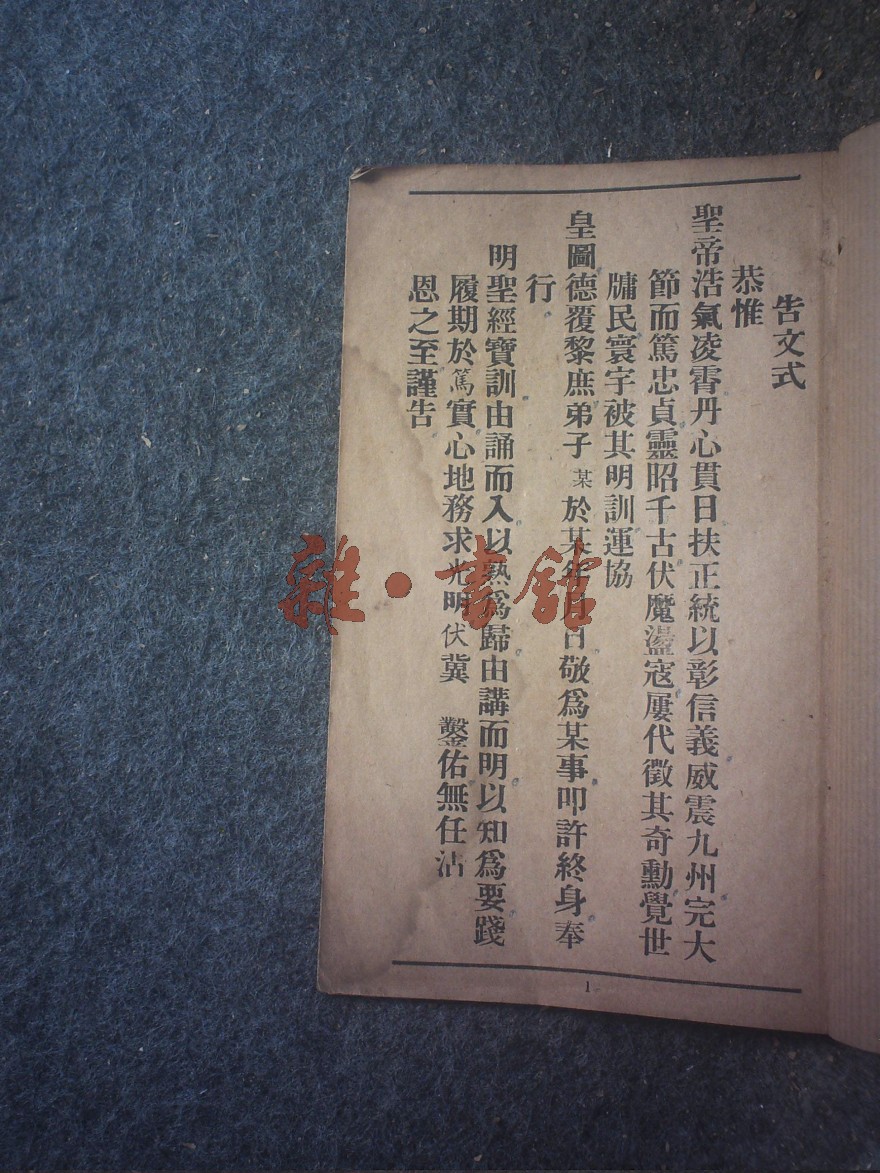 告文式
恭惟
聖帝浩氣凌霄丹心貫日扶正統以彰信義威震九州完大
節而篤忠貞靈昭千古伏魔盪寇屢代徵其奇勳覺世
牖民寰宇被其明訓運協
皇圖德覆黎庶弟子某於某年月日敬爲某事叩許終身奉
行
明聖經寶訓由誦而入以熟爲歸由講而明以知爲要踐
履期於篤實心地務求光明伏冀 鑿佑無任沾
恩之至謹告
1
雜·書館